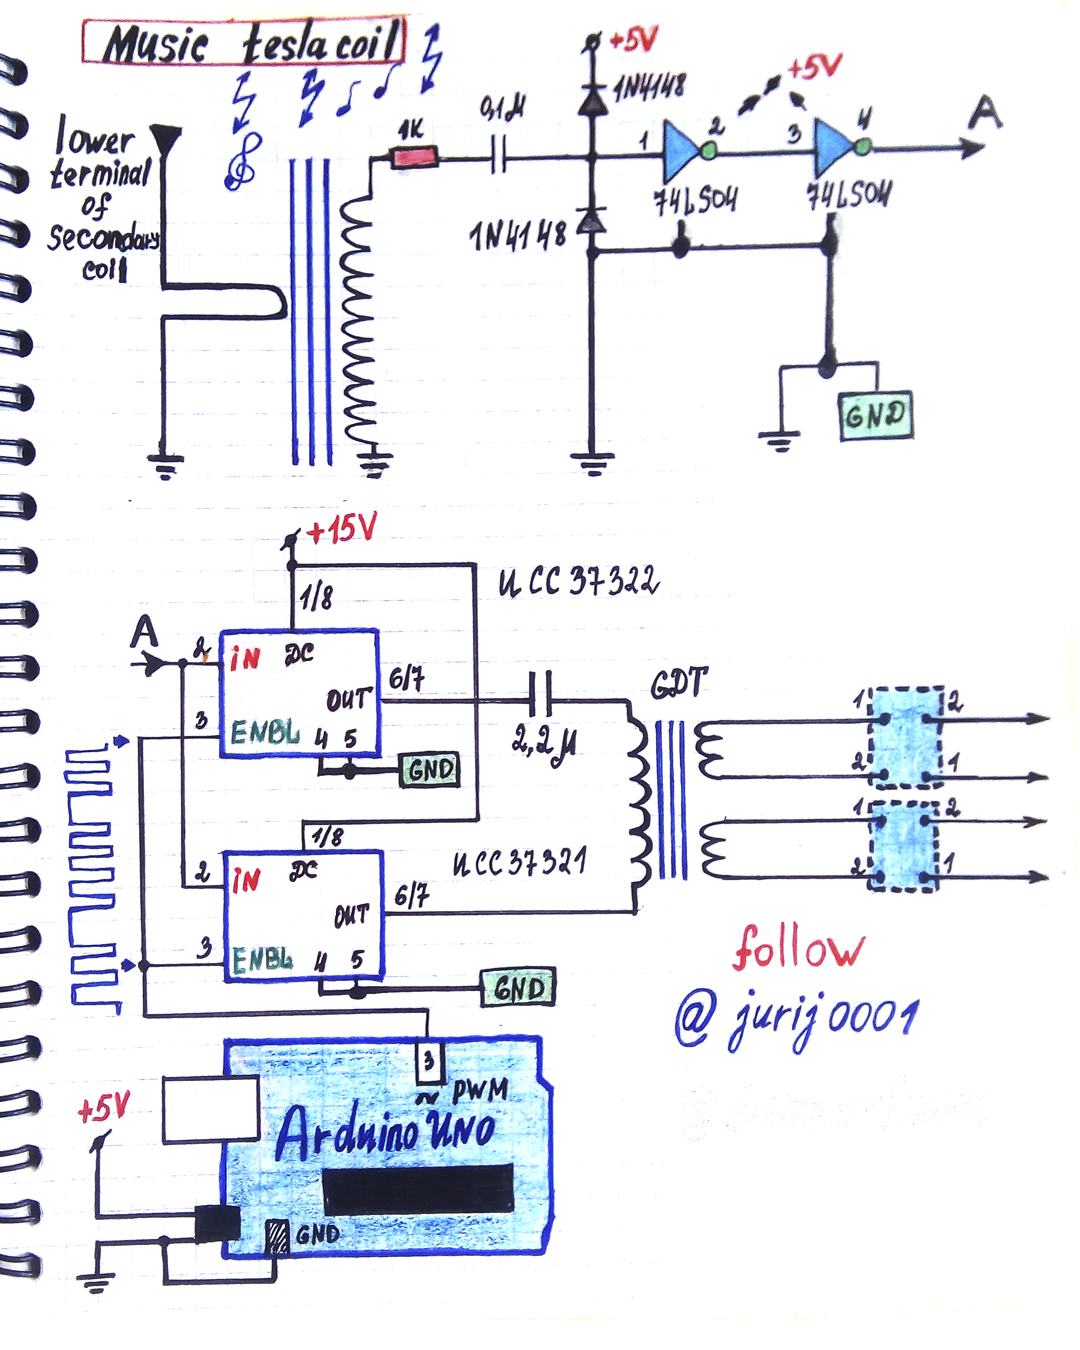 Music tesla coil
+5V
1N4148
+5V
lower
terminal
of
secondary
coil
1K
0,1μ
1
2
3
4
A
74LS04
74LS04
1N4148
GND
+15V
1/8
UCC37322
A
2
iN
DC
6/7
OUT
GDT
3
ENBL
4
5
GND
2,2μ
1
2
2
1
1
2
2
1
1/8
2
iN
DC
UCC37321
OUT
6/7
3
ENBL
4
5
GND
follow
@jurij0001
3
~ PWM
+5V
Arduino UNO
GND